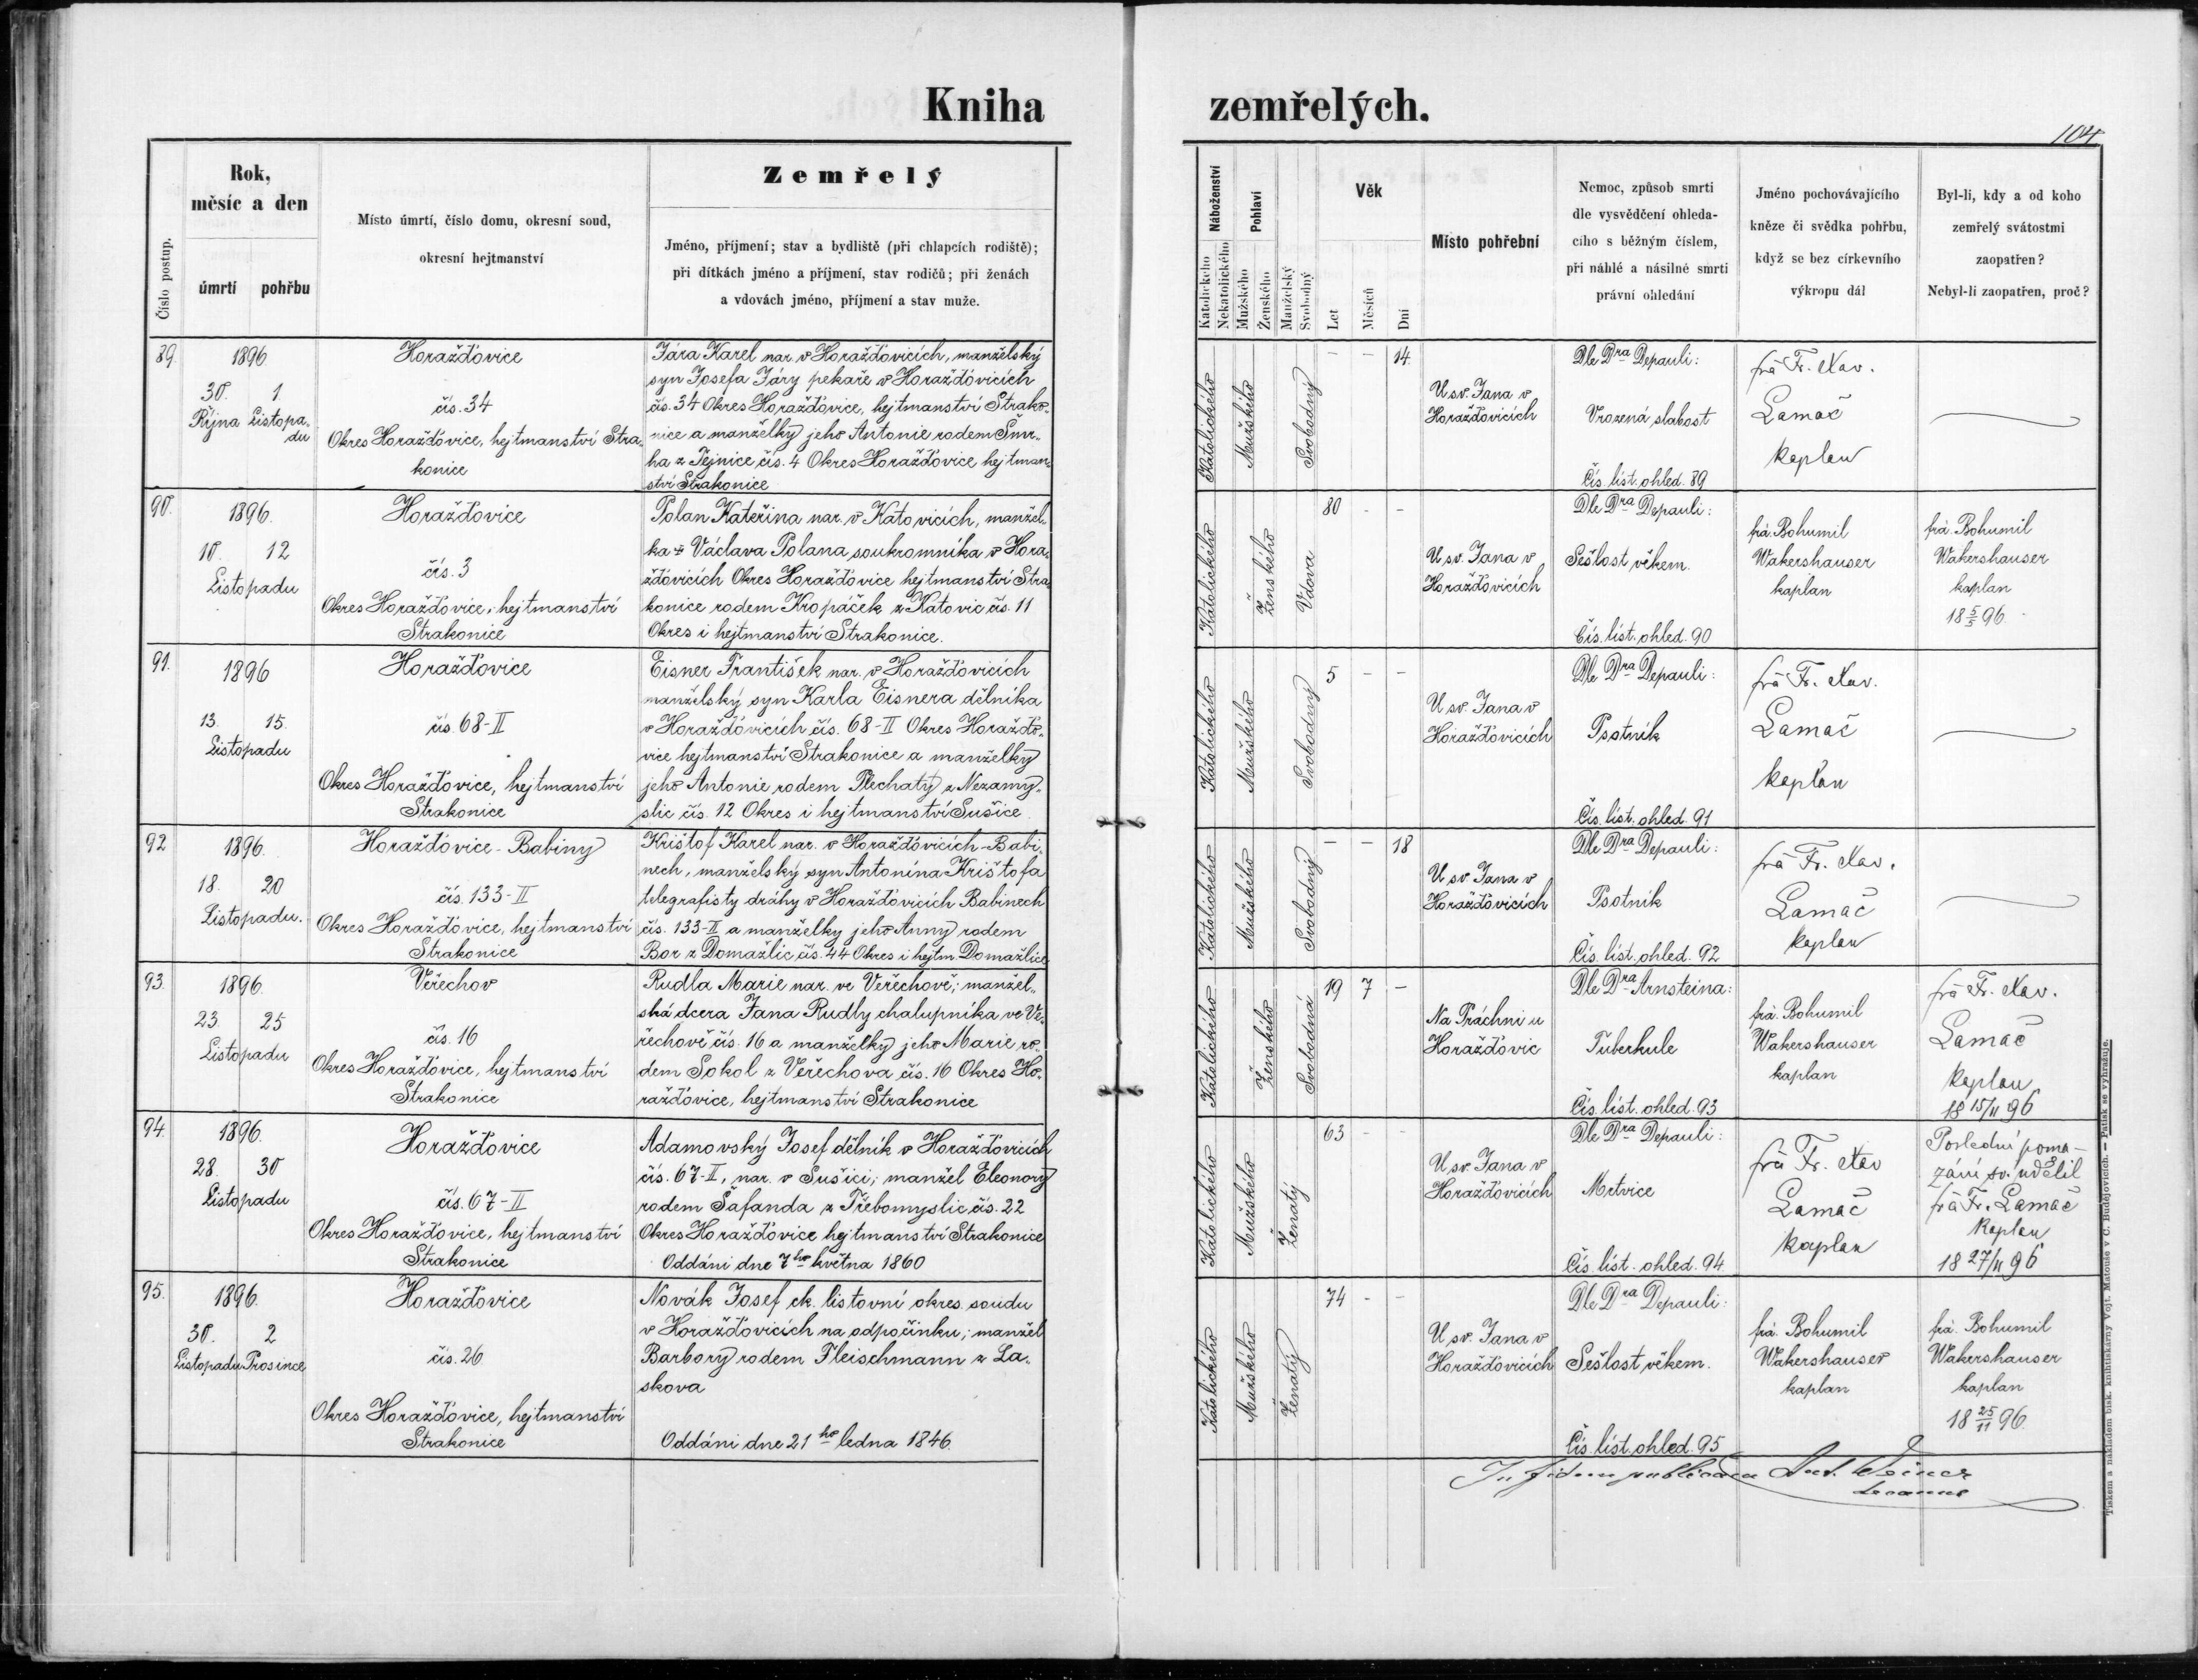 Kniha zemřelých.
104.
Číslo postup.
Rok,
měsíc a den
úmrtí pohřbu
Místo úmrtí, číslo domu, okresní soud,
okresní hejtmanství
Zemřelý
Jméno, příjmení; stav a bydliště (při chlapcích rodiště);
při dítkách jméno a příjmení, stav rodičů; při ženách
a vdovách jméno, příjmení a stav muže.
Náboženství
Katolického
Nekatolického
Pohlaví
Mužského
Ženského
Manželský
Svobodný
Věk
Let
Měsíců
Dní
Místo pohřební
Nemoc, způsob smrti
dle vysvědčení ohleda-
cího s běžným číslem,
při náhlé a násilné smrti
právní ohledání
Jméno pochovávajícího
kněze či svědka pohřbu,
když se bez církevního
výkropu dál
Byl-li, kdy a od koho
zemřelý svátostmi
zaopatřen?
Nebyl-li zaopatřen, proč?
89.
1896
30. 1.
Října Listopa„
du
Horažďovice
čís. 34
Okres Horažďovice, hejtmanství Stra„
konice
Jára Karel nar. v Horažďovicích, manželský
syn Josefa Járy pekaře v Horažďovicích
čís. 34 Okres Horažďovice, hejtmanství Strako„
nice a manželky jeho Antonie rodem Šmr„
ha z Tejnice čís. 4 Okres Horažďovice hejtman„
ství Strakonice
Katolického
Mužského
Svobodný
– – 14.
U sv. Jana v
Horažďovicích
Dle Dra Depauli:
Vrozená slabost
Čís. list. ohled. 89
frá Fr. Xav.
Lamač
kaplan
90.
1896.
10. 12
Listopadu
Horažďovice
čís. 3
Okres Horažďovice, hejtmanství
Strakonice
Polan Kateřina nar. v Katovicích, manžel„
ka Václava Polana soukromníka v Hora„
žďovicích Okres Horažďovice hejtmanství Stra„
konice rodem Kropáček z Katovic čís. 11
Okres i hejtmanství Strakonice.
Katolického
Ženského
Vdova
80 - -
U sv. Jana v
Horažďovicích
Dle Dra Depauli:
Sešlost věkem.
Čís. list. ohled. 90
frá. Bohumil
Wakershauser
kaplan
frá. Bohumil
Wakershauser
kaplan
18 5/5 96.
91.
1896
13. 15.
Listopadu
Horažďovice
čís. 68-II
Okres Horažďovice, hejtmanství
Strakonice
Eisner František nar. v Horažďovicích
manželský syn Karla Eisnera dělníka
v Horažďovicích čís. 68-II Okres Horažďo„
vice hejtmanství Strakonice a manželky
jeho Antonie rodem Plechatý z Nezamy„
slic čís. 12 Okres i hejtmanství Sušice
Katolického
Mužského
Svobodný
5 - -
U sv. Jana v
Horažďovicích
Dle Dra Depauli:
Psotník
Čís. list. ohled. 91
frá Fr. Xav.
Lamač
kaplan
92
1896.
18. 20
Listopadu.
Horažďovice - Babiny
čís. 133-II
Okres Horažďovice, hejtmanství
Strakonice
Krištof Karel nar. v Horažďovicích-Babi„
nech, manželský syn Antonína Krištofa
telegrafisty dráhy v Horažďovicích Babinech
čís. 133-II a manželky jeho Anny rodem
Bor z Domažlic čís. 44 Okres i hejtm. Domažlice
Katolického
Mužského
Svobodný
– – 18
U sv. Jana v
Horažďovicích
Dle Dra Depauli:
Psotník
Čís. list. ohled. 92
frá Fr. Xav.
Lamač
kaplan
93.
1896.
23. 25
Listopadu
Veřechov
čís. 16
Okres Horažďovice, hejtmanství
Strakonice
Rudla Marie nar. ve Veřechově; manžel„
ská dcera Jana Rudly chalupníka ve Ve„
řechově čís. 16 a manželky jeho Marie ro„
dem Sokol z Veřechova čís. 16 Okres Ho„
ražďovice, hejtmanství Strakonice
Katolického
Ženského
Svobodná
19 7 –
Na Práchni u
Horažďovic
Dle Dra Arnsteina:
Tuberkule
Čís. list. ohled. 93
frá. Bohumil
Wakershauser
kaplan
frá Fr. Xav.
Lamač
kaplan
18 15/11 96
94.
1896.
28. 30
Listopadu
Horažďovice
čís. 67-II
Okres Horažďovice, hejtmanství
Strakonice
Adamovský Josef dělník v Horažďovicích
čís. 67-II, nar. v Sušici; manžel Eleonory
rodem Šafanda z Třebomyslic čís. 22
Okres Horažďovice hejtmanství Strakonice
Oddáni dne 7ho května 1860
Katolického
Mužského
Ženatý
63 - -
U sv. Jana v
Horažďovicích
Dle Dra Depauli:
Mrtvice
Čís. list. ohled. 94
frá Fr. Xav
Lamač
kaplan
Poslední poma–
zání sv. udělil
frá Fr. Lamač
kaplan
18 27/11 96
95.
1896.
30. 2
Listopadu Prosince
Horažďovice
čís. 26
Okres Horažďovice, hejtmanství
Strakonice
Novák Josef ck. listovní okres. soudu
v Horažďovicích na odpočinku; manžel
Barbory rodem Fleischmann z La„
skova
Oddáni dne 21ho ledna 1846.
Katolického
Mužského
Ženatý
74 - -
U sv. Jana v
Horažďovicích
Dle Dra Depauli:
Sešlost věkem.
Čís. list. ohled. 95
frá. Bohumil
Wakershauser
kaplan
frá. Bohumil
Wakershauser
kaplan
18 25/11 96.
In fidem publicam Ant.
Decanus
Tiskem a nákladem bisk. knihtiskárny Vojt. Matouše v Č. Budějovicích. — Patisk se vyhražuje.